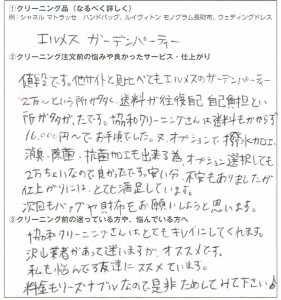 ①クリーニング品(なるべく詳しく)
例:シャネル マトラッセ ハンドバッグ、ルイヴィトン モノグラム長財布、ウェディングドレス
エルメス ガーデンパーティー
②クリーニング注文前の悩みや良かったサービス・仕上がり
値段です。他サイトと見比べてもエルメスのガーデンパーティー
2万〜という所が多く、送料が往復自己負担とい
所が多かったです。協和クリーニングさんは送料もかからず
16,000円〜でお手頃でした。又、オプションで、撥水加工、
消臭・除菌・抗菌加工も出来る為、オプション選択しても
2万ちょいなので良かったです。安い分、不安もありましたが
仕上がりには、とても満足しています。
次回もバッグや財布をお願いしようと思います。
③クリーニング前の迷っている方や、悩んでいる方へ
協和クリーニングさんはとてもキレイにしてくれます。
沢山業者があって迷いますが、オススメです。
私も悩んでる友達にススメています。
料金もリーズナブルなので是非ためしてみて下さい